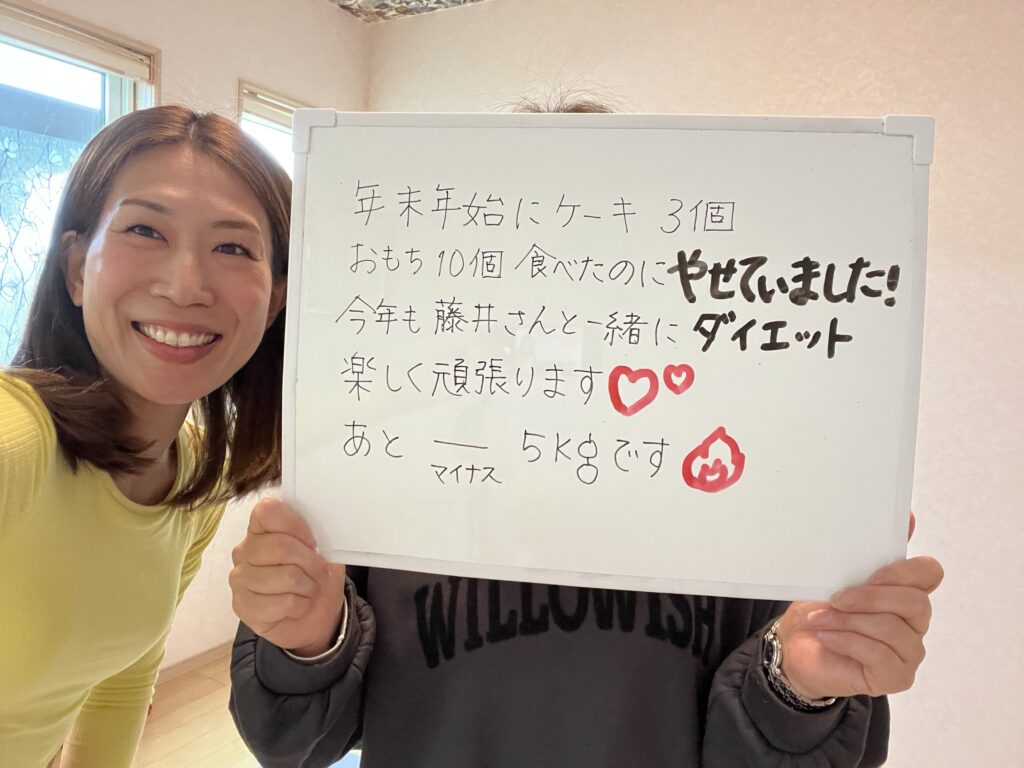 年末年始にケーキ 3個
おもち10個 食べたのにやせていました!
今年も藤井さんと一緒に ダイエット
楽しく頑張ります
あと ー 5kgです
マイナス
WILLOWISH